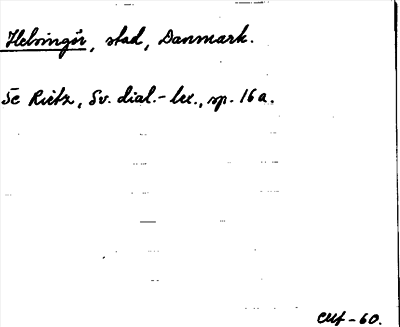 Helsingör, stad, Danmark.
Se Rietz, Sv. dial.-lex., sp. 16a.
-60.